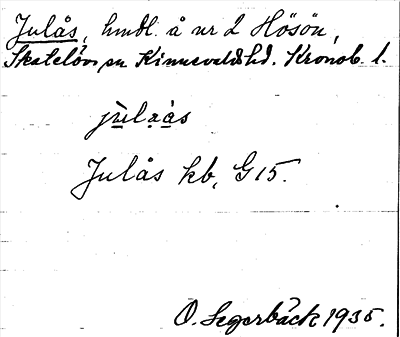 Julås, hmdl. å nr 2 Hösön,
Skatelövs sn Kinnevalds hd. Kronob. l.
jùlạás
Julås kb, G 15.
O. Segerbäck 1935.